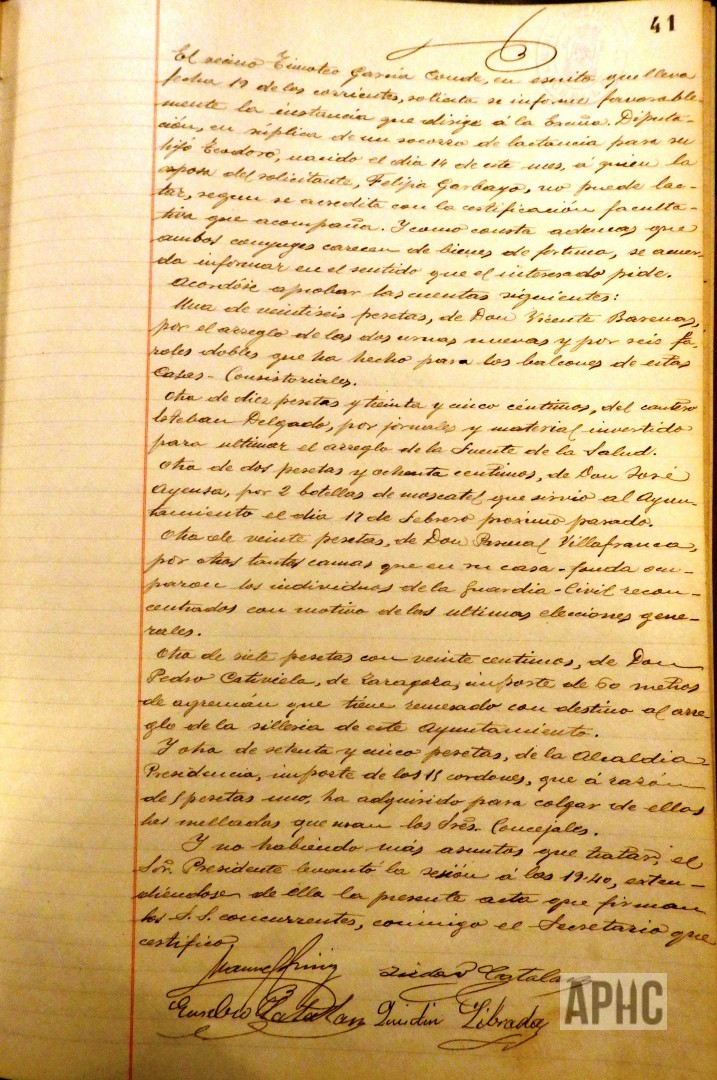 41
El vecino Timoteo Garcia Conde, en escrito que lleva
fecha 19 de los corrientes, solicita se informe favorable-
mente la instancia que dirige á la Excma. Diputa-
ción, en súplica de un socorro de lactancia para su
hijo Teodoro, nacido el dia 14 de este mes, á quien la
esposa del solicitante, Felipa Garbayo, no puede lac-
tar, segun se acredita con la certificación faculta-
tiva que acompaña. Y como consta ademas que
ambos conyuges carecen de bienes de fortuna, se acuer-
da informar en el sentido que el interesado pide.
Acordóse aprobar las cuentas siguientes:
Una de veintiseis pesetas, de Don Vicente Barenas,
por el arreglo de las dos urnas nuevas y por seis fa-
roles dobles que ha hecho para los balcones de estas
Casas-Consistoriales.
Otra de diez pesetas y treinta y cinco centimos, del cantero
Esteban Delgado, por jornales y material invertido
para ultimar el arreglo de la Fuente de la Salud.
Otra de dos pesetas y ochenta centimos, de Don José
Ayensa, por 2 botellas de moscatel que sirvió al Ayun-
tamiento el dia 17 de Febrero proximo pasado.
Otra de veinte pesetas, de Don Pascual Villafranca,
por otras tantas camas que en su casa-fonda ocu-
paron los individuos de la Guardia-Civil recon-
centrados con motivo de las ultimas elecciones gene-
rales.
Otra de siete pesetas con veinte centimos, de Don
Pedro Cativiela, de Zaragoza, importe de 60 metros
de agremán que tiene remesado con destino al arre-
glo de la silleria de este Ayuntamiento.
Y otra de setenta y cinco pesetas, de la Alcaldia-
Presidencia, importe de los 15 cordones, que á razón
de 5 pesetas uno, ha adquirido para colgar de ellos
las medallas que usan los Sres. Concejales.
Y no habiendo más asuntos que tratar, el
Sor. Presidente levantó la sesión á las 19.40, exten-
diéndose de ella la presente acta que firman
los S. S. concurrentes, conmigo el Secretario que
certifico.
Catalan
Eusebio Catalan Librada
APHC